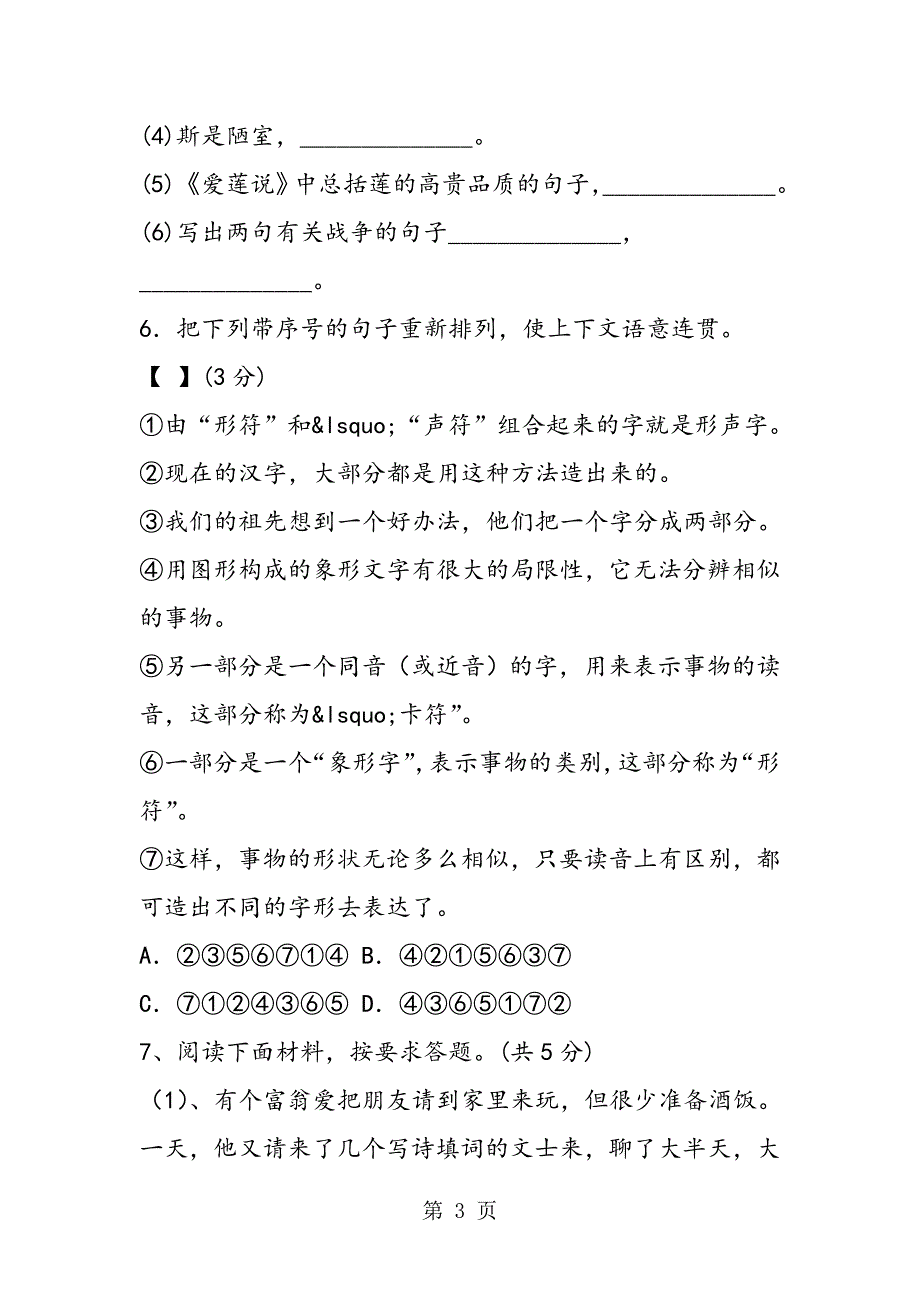 (4)斯是陋室，______________。
(5)《爱莲说》中总括莲的高贵品质的句子,______________。
(6)写出两句有关战争的句子______________，
______________。
6．把下列带序号的句子重新排列，使上下文语意连贯。
【 】(3分)
①由“形符”和&lsquo;“声符”组合起来的字就是形声字。
②现在的汉字，大部分都是用这种方法造出来的。
③我们的祖先想到一个好办法，他们把一个字分成两部分。
④用图形构成的象形文字有很大的局限性，它无法分辨相似
的事物。
⑤另一部分是一个同音（或近音）的字，用来表示事物的读
音，这部分称为&lsquo;卡符”。
⑥一部分是一个“象形字”,表示事物的类别,这部分称为“形
符”。
⑦这样，事物的形状无论多么相似，只要读音上有区别，都
可造出不同的字形去表达了。
A．②③⑤⑥⑦①④ B．④②①⑤⑥③⑦
C．⑦①②④③⑥⑤ D．④③⑥⑤①⑦②
7、阅读下面材料，按要求答题。(共5分)
（1)、有个富翁爱把朋友请到家里来玩，但很少准备酒饭。
一天，他又请来了几个写诗填词的文士来，聊了大半天，大
第 3 页